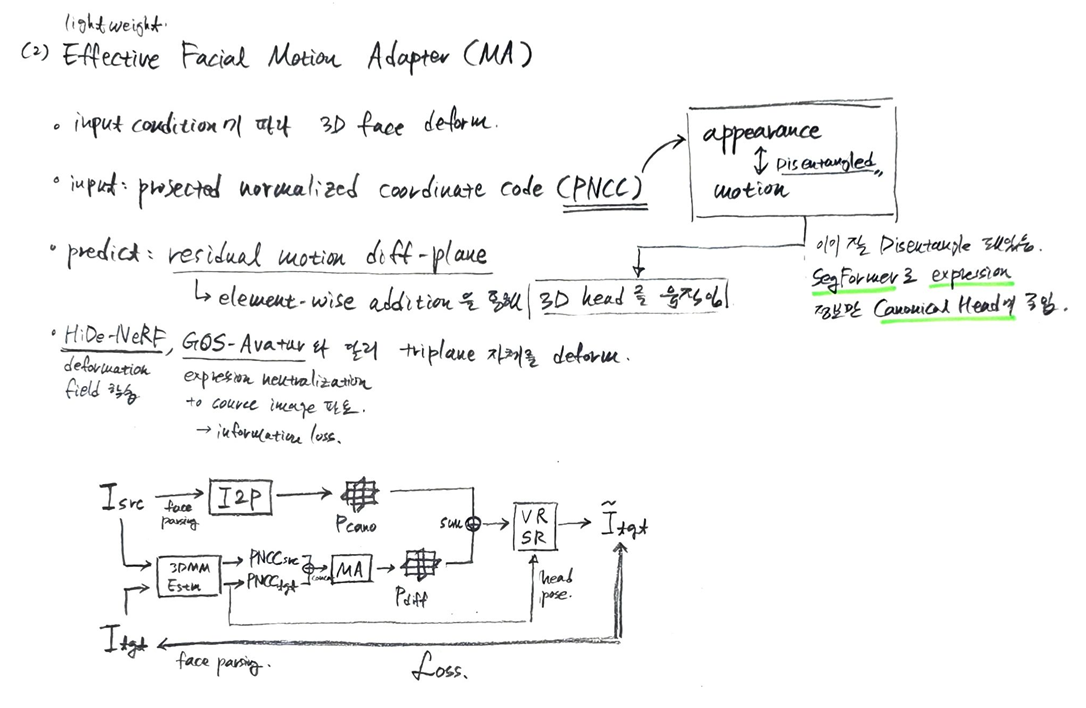 lightweight.
(2) Effective Facial Motion Adapter (MA)
• input condition에 따라 3D face deform.
• input: projected normalized coordinate code (PNCC)
appearance
↕ Disentangled
motion
• predict: residual motion diff-plane
↳ element-wise addition을 통해 3D head를 움직임
이미 잘 Disentangle 돼있음.
SegFormer로 expression
정보만 Canonical Head에 주입.
• HiDe-NeRF, GOS-Avatar와 달리 triplane 자체를 deform.
deformation
field 학습
expression neutralization
to source image 필요.
→ information loss.
Isrc
face
parsing
I2P
Pcano
sum
VR
SR
Ĩtgt
3DMM
Estm
PNCCsrc
PNCCtgt
concat
MA
Pdiff
head
pose.
Itgt
face parsing.
Loss.